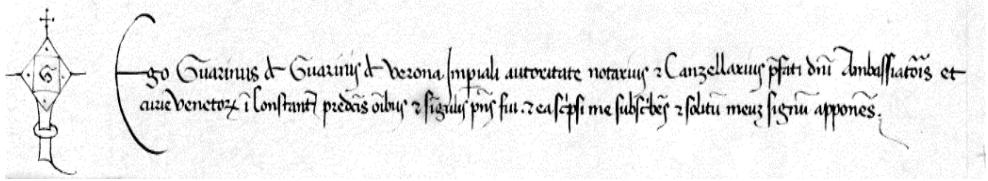 G
Ego Guarinus de Guarinis de Verona Imperiali autoritate notarius et Canzellarius p̄fati dn̄i Ambassiatōris et
curie Venetoꝝ ī Constant̄ predc̄is oībus et singulis pn̄s fui et ea scripsi me subscrībēs et solitū meuz signū apponēs.